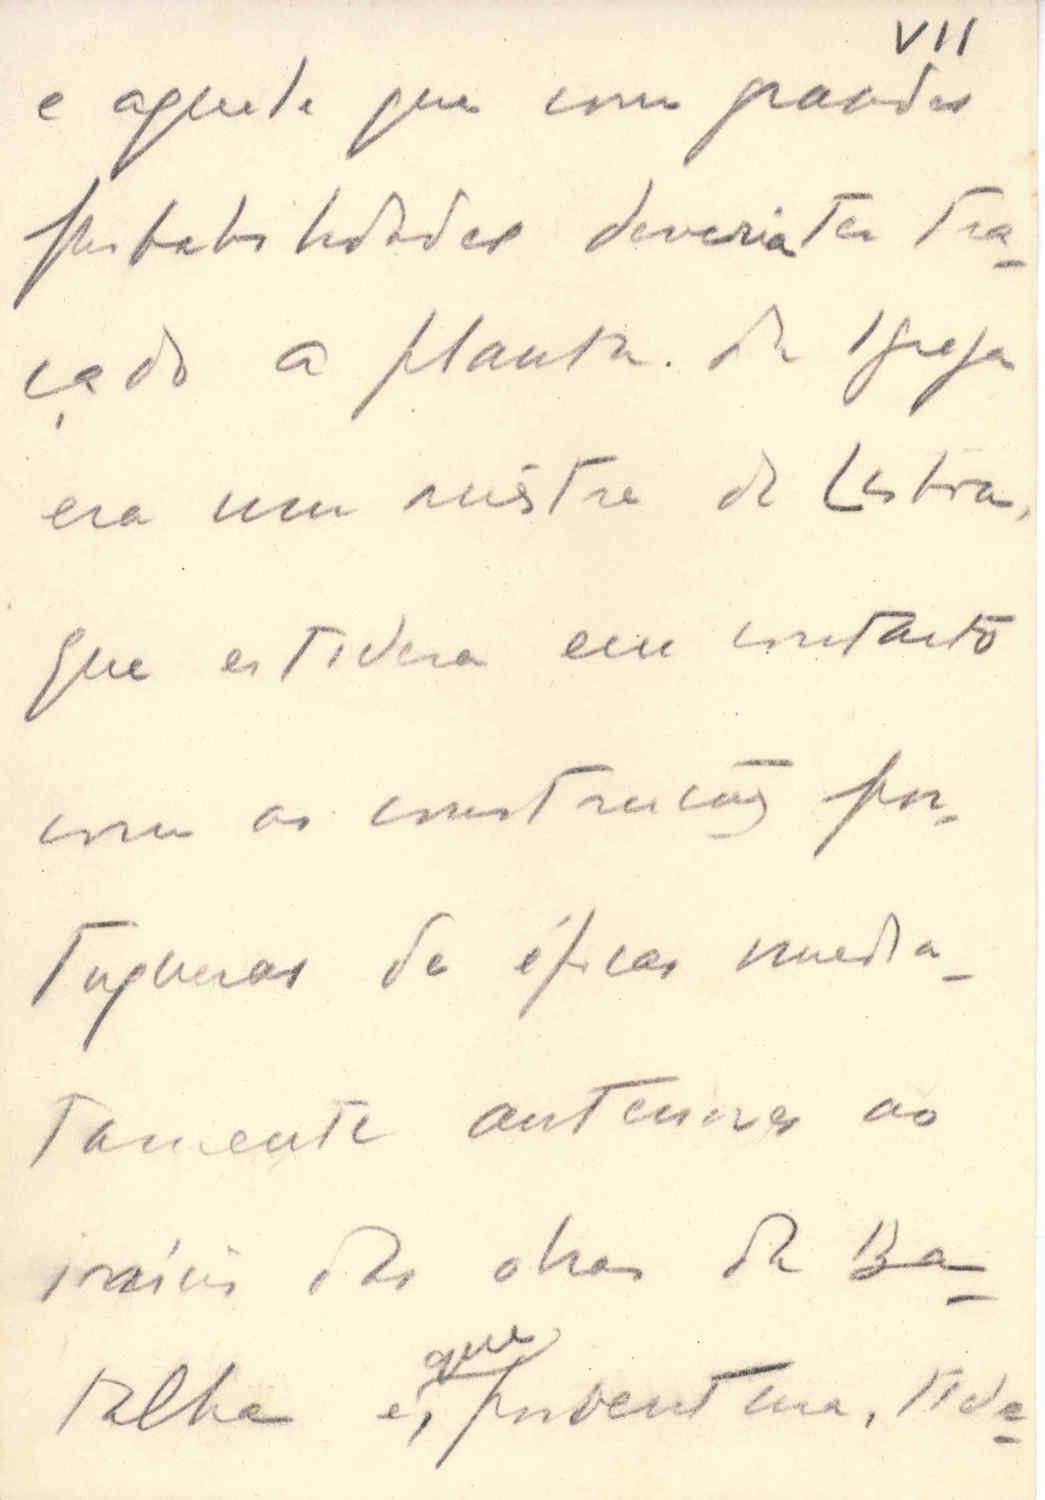 VII
e aquele que com grandes
probabilidades deveria ter tra-
çado a planta da Igreja
era um mestre de Lisboa,
que estivera em contacto
com as construções por-
tuguesas de épocas media-
tamente anteriores ao
início das obras da Ba-
talha e, que porventura, tive-